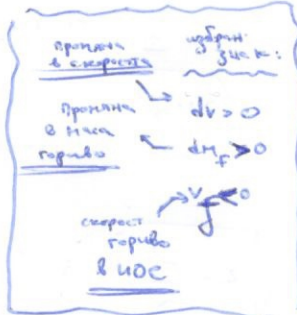 промяна
в скоростта
избран
знак:
dv > 0
промяна
в маса
гориво
dm_f > 0
v_f < 0
скорост
гориво
в ИОС